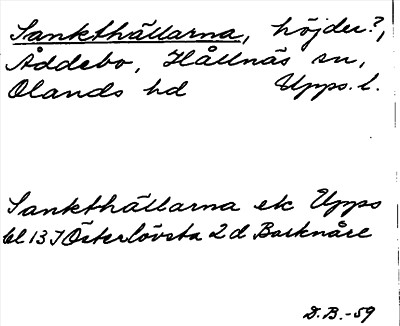 Sankthällarna, höjder?,
Åddebo, Hållnäs sn,
Olands hd Upps. l.
Sankthällarna ek Upps
bl 13 J Österlövsta 2 d Barknåre
D.B.-59